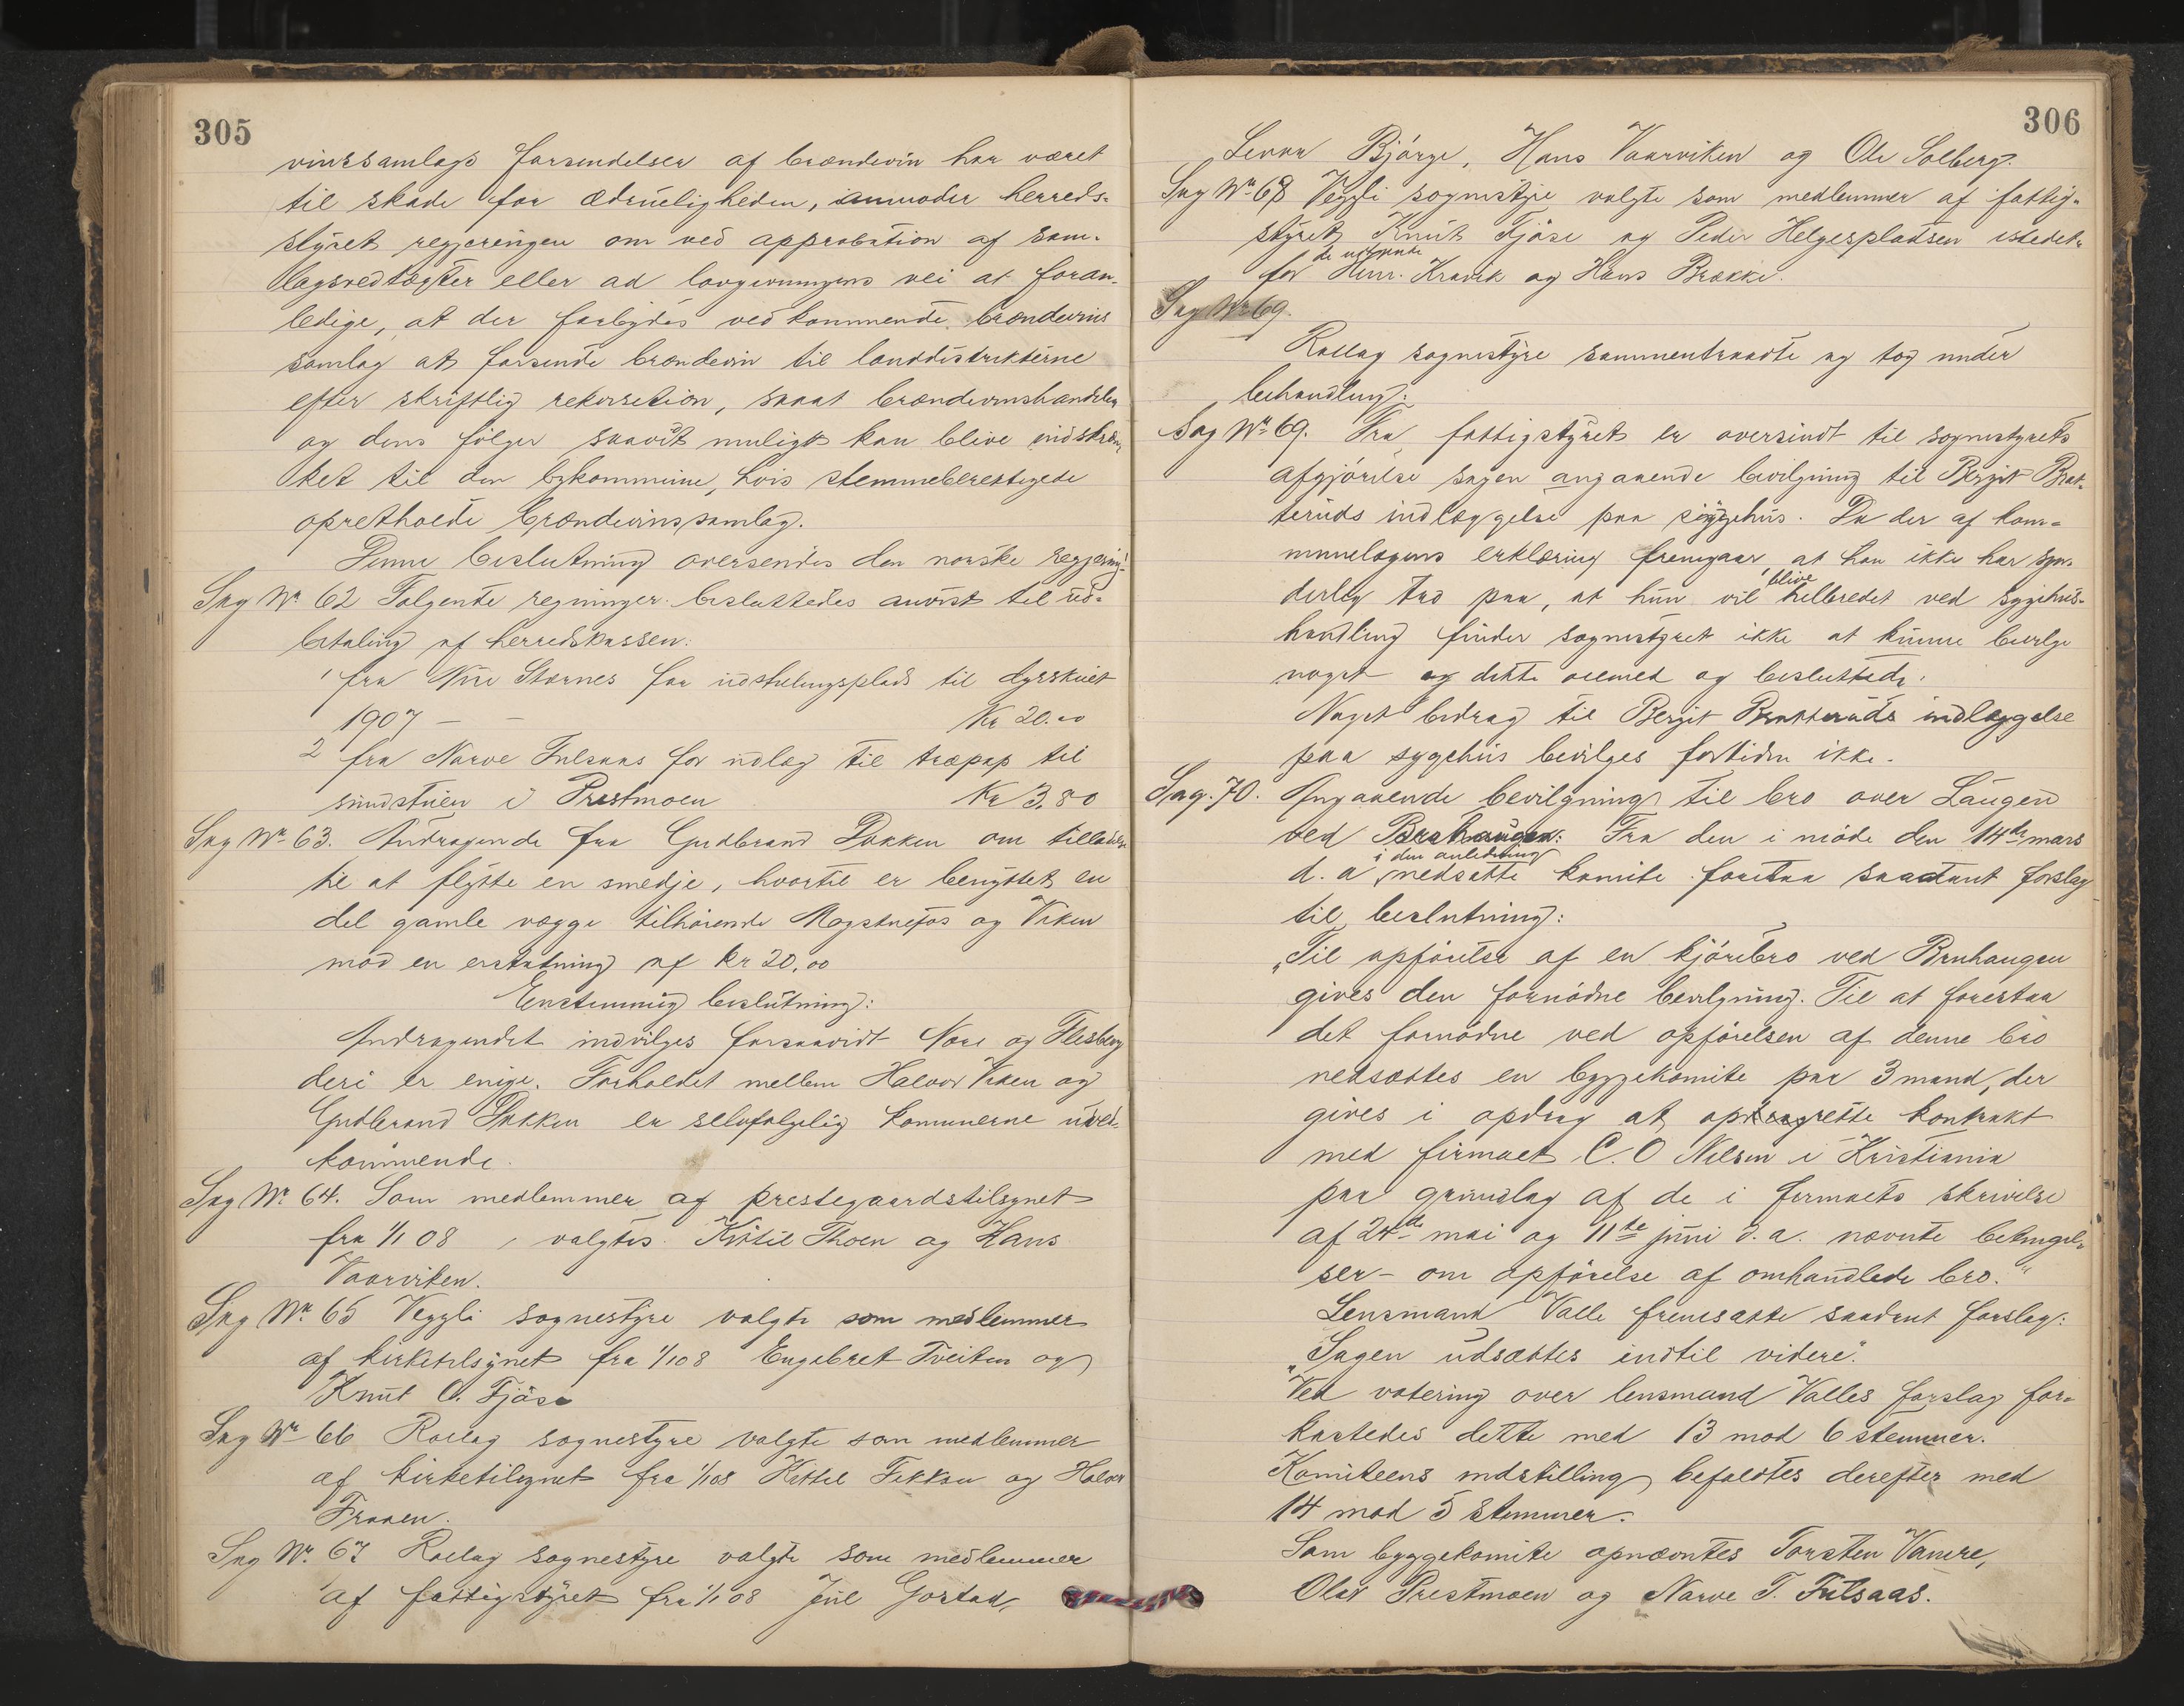 305
vinssamlags forsendelser af brændevin har været
til skade for ædrueligheden, anmoder herreds-
styret regjeringen om ved approbation af sam-
lagsvedtægter eller ad lovgivningens vei at foran-
ledige, at der forbydes vedkommende brændevins
samlag at forsende brændevin til landdistrikterne
efter skriftlig rekvisition, saaat brændevinshandelen
og dens følger saavidt muligt kan blive indskræn-
ket til den bykommune, hvis stemmeberettigede
opretholdt brændevinssamlag.
Denne beslutning oversendes den norske regjering.
Sag Nr 62 Følgende regninger besluttedes anvist til ud-
betaling af herredskassen:
1 fra Stærnes for udstillingsplads til dyrskuet
1907 — — Kr 20.00
2 fra Narve Fulsaas for udlæg til træpap til
smedstuen i Prestmoen Kr 3.80
Sag Nr 63. Andragende fra Gudbrand Dokken om tilladelse
til at flytte en smedje, hvortil er benyttet en
del gamle vægge tilhørende Mogstuefos og Viken
mod en erstatning af kr 20,00
Enstemmig beslutning:
Andragendet indvilges forsaavidt Nore og Flesberg
deri er enige. Forholdet mellem Halvor Viken og
Gudbrand Dokken er selvfølgelig kommunerne uved-
kommende.
Sag Nr 64. Som medlemmer af prestegaardstilsynet
fra 1/1 08, valgtes Kittil Thoen og Hans
Vaarviken.
Sag Nr. 65 Veggli sognestyre valgte som medlemmer
af kirketilsynet fra 1/1 08 Engebret Tveiten og
Knut O. Fjøse
Sag Nr 66 Rollag sognestyre valgte som medlemmer
af kirketilsynet fra 1/1 08 Kittel og Halvor
Fraaen.
Sag Nr. 67 Rollag sognestyre valgte som medlemmer
af fattigstyret fra 1/1 08 Jul Gortad,
306
Bjørge, Hans Vaarviken og Ole Solberg.
Sag Nr 68 Veggli sognestyre valgte som medlemmer af fattig-
styret Knut Fjøse og Peder Helgesplatsen istedet-
for de udtrædende Kravik og Hans Brække.
Sag Nr 69.
Rollag sognestyre sammentraadte og tog under
behandling:
Sag Nr 69. Fra fattigstyret er oversendt til sognestyrets
afgjørelse sagen angaaende bevilgning til Bergit Brat-
teruds indlæggelse paa sygehus. Da der af kom-
munelægens erklæring fremgaar, at han ikke har syn-
derlig tro paa, at hun vil blive helbredet ved sygehus-
handling finder sognestyret ikke at kunne bevilge
noget og dette og besluttede:
Noget bidrag til Bergit Bratteruds indlæggelse
paa sygehus bevilges fortiden ikke.
Sag. 70. Angaaende bevilgning til bro over Laugen
ved Bruhaugen: Fra den i møde den 14de mars
d. a i den anledning nedsatte komite foretaa saadant forslag
til beslutning:
„Til opførelse af en kjørebro ved Bruhaugen
gives den fornødne bevilgning. Til at forestaa
det fornødne ved opførelsen af denne bro
nedsættes en byggekomite paa 3 mand, der
gives i opdrag at oprette kontrakt
med firmaet C. O Nilsen i Kristiania
paa grundlag af de i firmaets skrivelse
af 24de mai og 11te juni d. a. nævnte betingel-
ser – om opførelse af omhandlede bro."
Lensmand Valle fremsatte saadant forslag:
„Sagen udsættes indtil videre".
Ved votering over lensmand Valles forslag for-
kastedes dette med 13 mod 6 stemmer.
Komiteens indstilling befaldtes derefter med
14 mod 5 stemmer.
Som byggekomite opnævntes Torsten Vanere,
Olav Prestmoen og Narve T. Fulsaas.